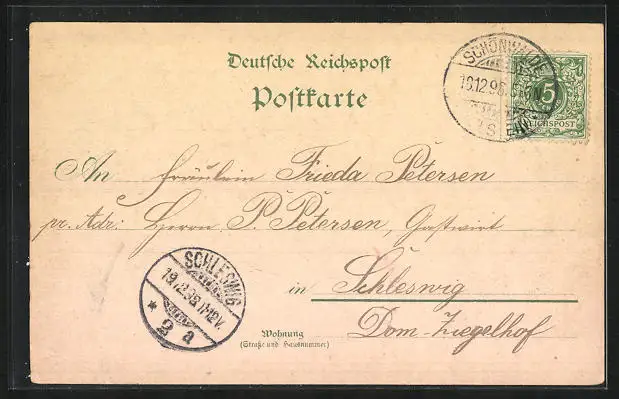 Deutsche Reichspost
Postkarte
SCHÖNWALDE
5
REICHSPOST
An Fräulein Frieda Petersen
pr. Adr: Herrn P. Petersen, Gastwirt
in Schleswig
Dom-Ziegelhof
Wohnung
(Straße und Hausnummer)
SCHLESWIG
19.12.98.11-12V.
* 2 a